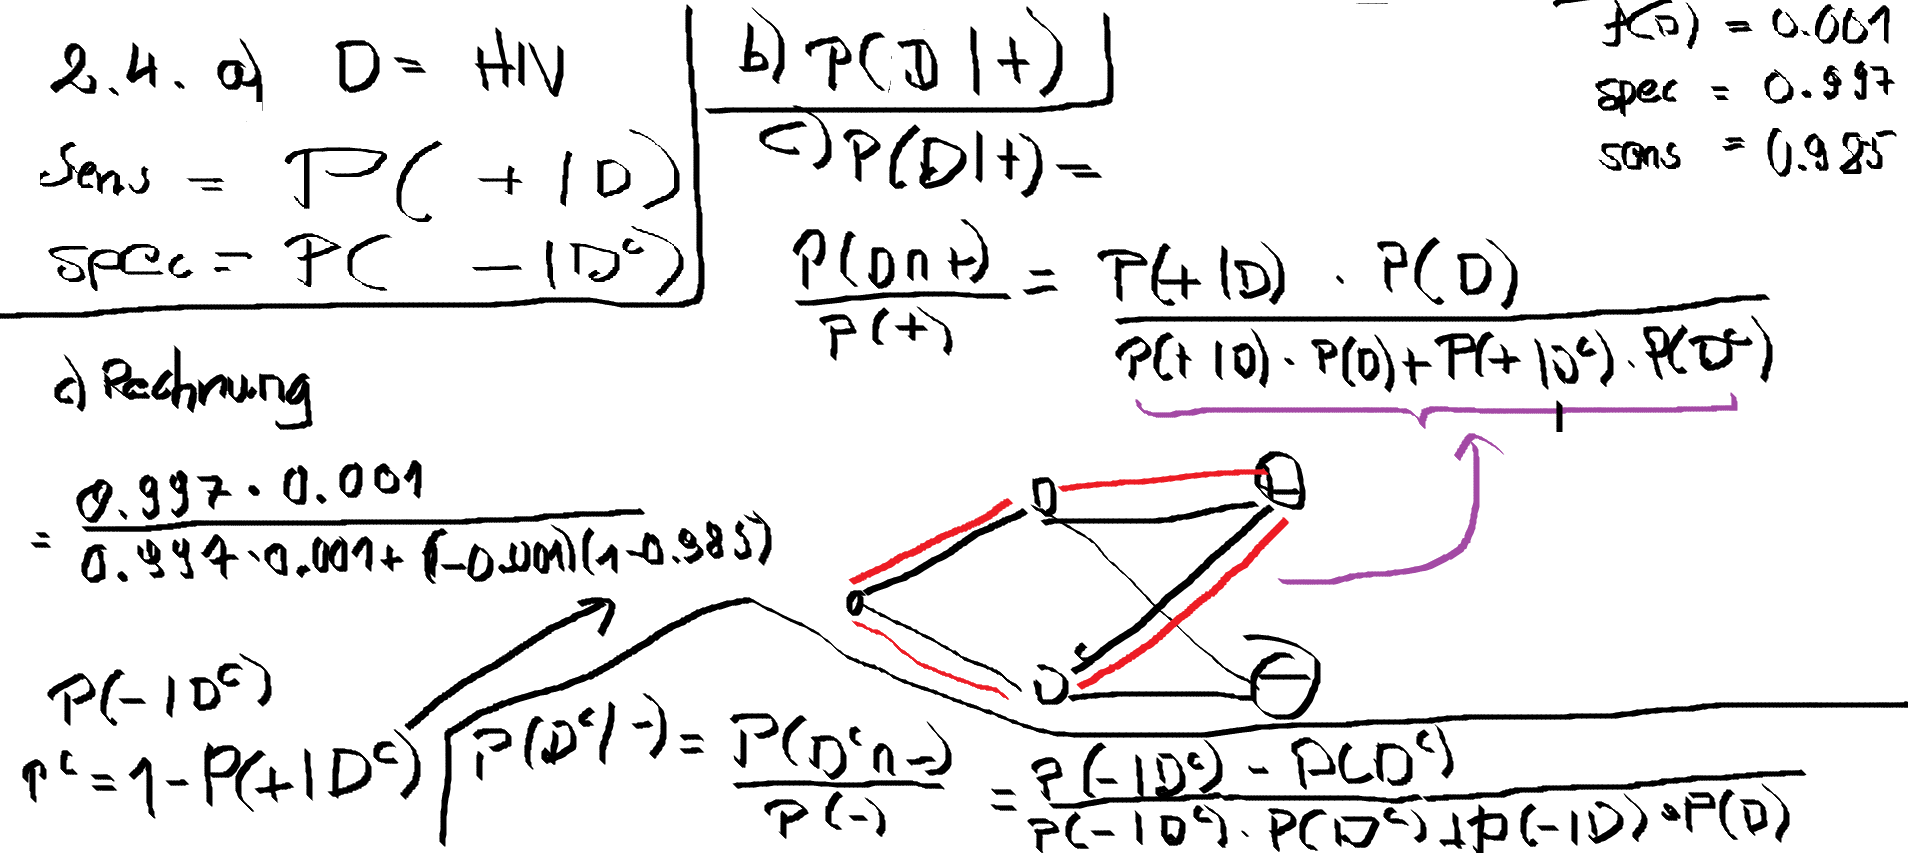 2.4. a) D = HIV
Sens = P( + | D)
spec = P( - | Dᶜ)
b) P(D | +)
c) P(D | +) =
P(D ∩ +) / P(+) = P(+ | D) · P(D) / P(+ | D) · P(D) + P(+ | Dᶜ) · P(Dᶜ)
f(D) = 0.001
spec = 0.997
sens = 0.985
c) Rechnung
= 0.997 · 0.001 / 0.997 · 0.001 + (1-0.001)(1-0.985)
P(- | Dᶜ)
= 1 - P(+ | Dᶜ)
D
Dᶜ
P(Dᶜ | -) = P(Dᶜ ∩ -) / P(-) = P(- | Dᶜ) - P(Dᶜ) / P(- | Dᶜ) · P(Dᶜ) + P(- | D) · P(D)